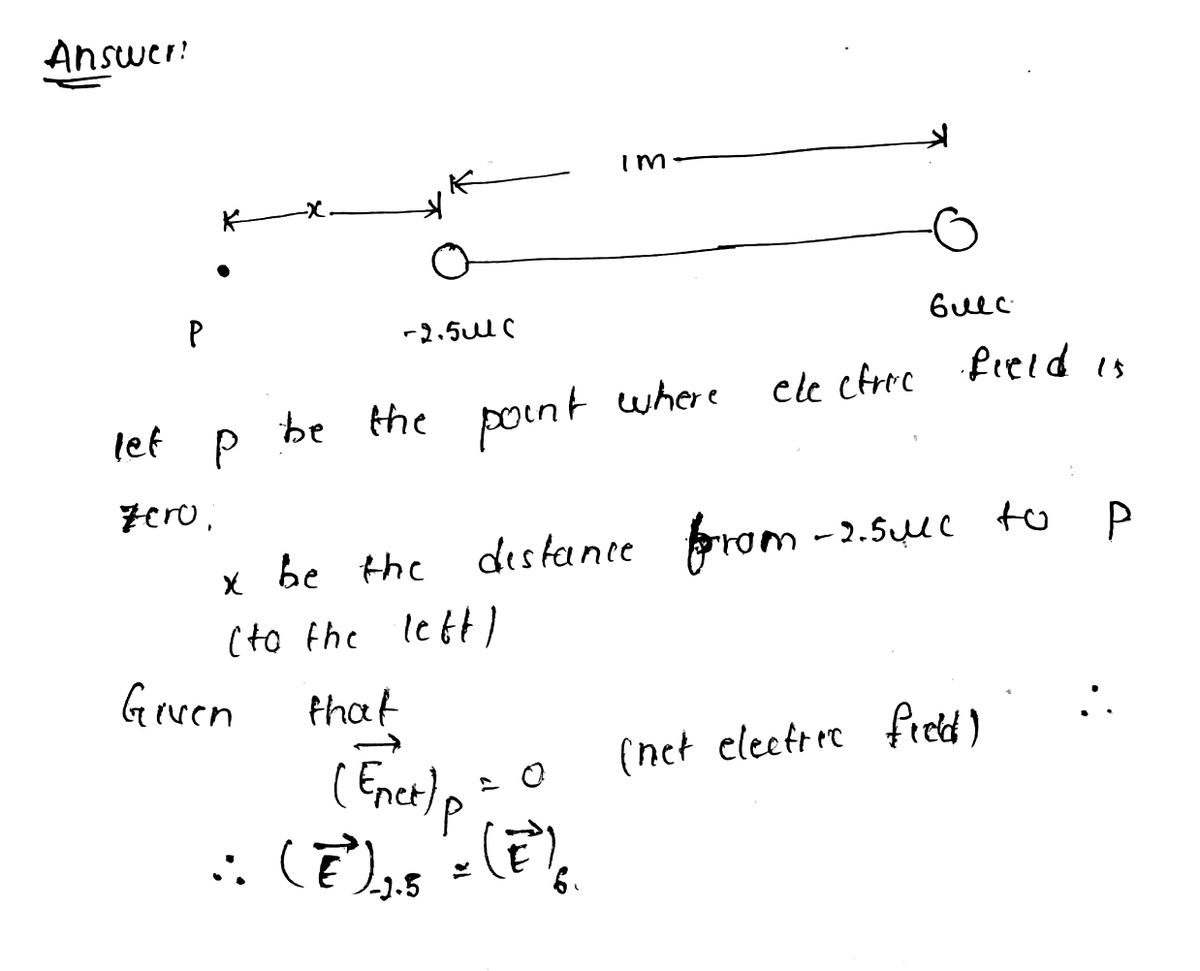 Answer:
1m
x
P
-2.5μC
6μC
let P be the point where electric field is
zero.
x be the distance from -2.5μC to P
(to the left)
Given that
(E⃗net)P = 0 (net electric field) ∴
∴ (E⃗)-2.5 = (E⃗)6.